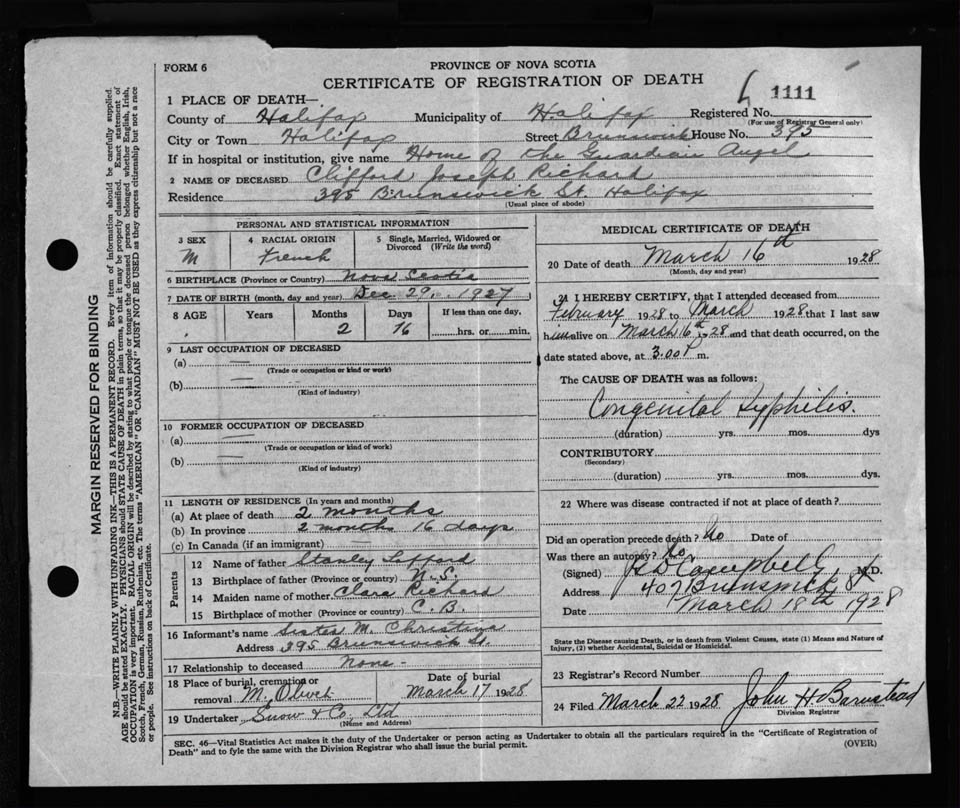 FORM 6
PROVINCE OF NOVA SCOTIA
CERTIFICATE OF REGISTRATION OF DEATH
1111
1 PLACE OF DEATH—
County of Halifax Municipality of Halifax Registered No.
(For use of Registrar General only)
City or Town Halifax Street Brunswick House No. 395
If in hospital or institution, give name Home of the Guardian Angel
2 NAME OF DECEASED Clifford Joseph Richard
Residence 395 Brunswick St. Halifax
(Usual place of abode)
PERSONAL AND STATISTICAL INFORMATION
3 SEX 4 RACIAL ORIGIN 5 Single, Married, Widowed or Divorced (Write the word)
M French
6 BIRTHPLACE (Province or Country) Nova Scotia
7 DATE OF BIRTH (month, day and year) Dec. 29, 1927
8 AGE Years Months Days If less than one day,
2 16 hrs. or min.
9 LAST OCCUPATION OF DECEASED
(a) —
(Trade or occupation or kind or work)
(b) —
(Kind of industry)
10 FORMER OCCUPATION OF DECEASED
(a) —
(Trade or occupation or kind of work)
(b) —
(Kind of industry)
11 LENGTH OF RESIDENCE (In years and months)
(a) At place of death 2 months
(b) In province 2 months 16 days
(c) In Canada (if an immigrant) —
Parents
12 Name of father Stanley
13 Birthplace of father (Province or country) N.S.
14 Maiden name of mother Clara Richard
15 Birthplace of mother (Province or country) C.B.
16 Informant's name Sister M. Christina
Address 395 Brunswick St.
17 Relationship to deceased None -
18 Place of burial, cremation or removal M. Olivet Date of burial March 17 1928
19 Undertaker Snow & Co. Ltd
(Name and Address)
MEDICAL CERTIFICATE OF DEATH
20 Date of death March 16th 1928
(Month, day and year)
21 I HEREBY CERTIFY, that I attended deceased from
February 1928 to March 1928 that I last saw
him alive on March 16th 1928 and that death occurred, on the
date stated above, at 3.00 P m.
The CAUSE OF DEATH was as follows:
Congenital Syphilis.
(duration) yrs. mos. dys
CONTRIBUTORY
(Secondary)
(duration) yrs. mos. dys.
22 Where was disease contracted if not at place of death?
Did an operation precede death? No Date of
Was there an autopsy? No.
(Signed) Campbell M.D.
Address 407 Brunswick St
Date March 18th 1928
State the Disease causing Death, or in death from Violent Causes, state (1) Means and Nature of
Injury, (2) whether Accidental, Suicidal or Homicidal.
23 Registrar's Record Number
24 Filed March 22 1928 John H. Barnstead
Division Registrar
SEC. 46—Vital Statistics Act makes it the duty of the Undertaker or person acting as Undertaker to obtain all the particulars required in the "Certificate of Registration of
Death" and to fyle the same with the Division Registrar who shall issue the burial permit.
(OVER)
MARGIN RESERVED FOR BINDING
N.B.—WRITE PLAINLY WITH UNFADING INK—THIS IS A PERMANENT RECORD. Every item of information should be carefully supplied.
AGE should be stated EXACTLY. PHYSICIANS should STATE CAUSE OF DEATH in plain terms, so that it may be properly classified. Exact statement of
OCCUPATION is very important. RACIAL ORIGIN will be described by stating to what people or tongue the deceased person belonged whether English, Irish,
Scotch, French, German, Russian, Ruthenian, etc. The terms "AMERICAN" OR "CANADIAN" MUST NOT BE USED as they express citizenship but not a race
or people. See instructions on back of Certificate.